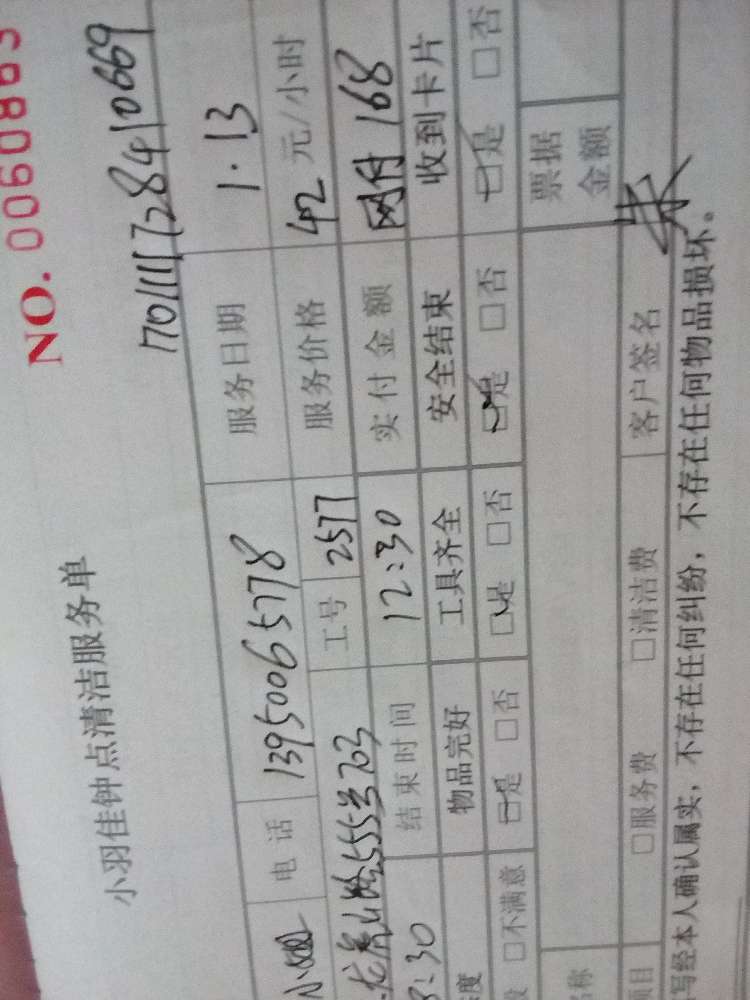 NO. 0060863
小羽佳钟点清洁服务单
1701111728410669
小姐 电话 13950065778 服务日期 1.13
龙虎山路555号703 工号 2577 服务价格 42 元/小时
8:30 结束时间 12:30 实付金额 网付168
度 物品完好 工具齐全 安全结束 收到卡片
□不满意 □是 □否 □是 □否 □是 □否 □是 □否
称 票据金额
项目 □服务费 □清洁费 客户签名 朱
写经本人确认属实，不存在任何纠纷，不存在任何物品损坏。